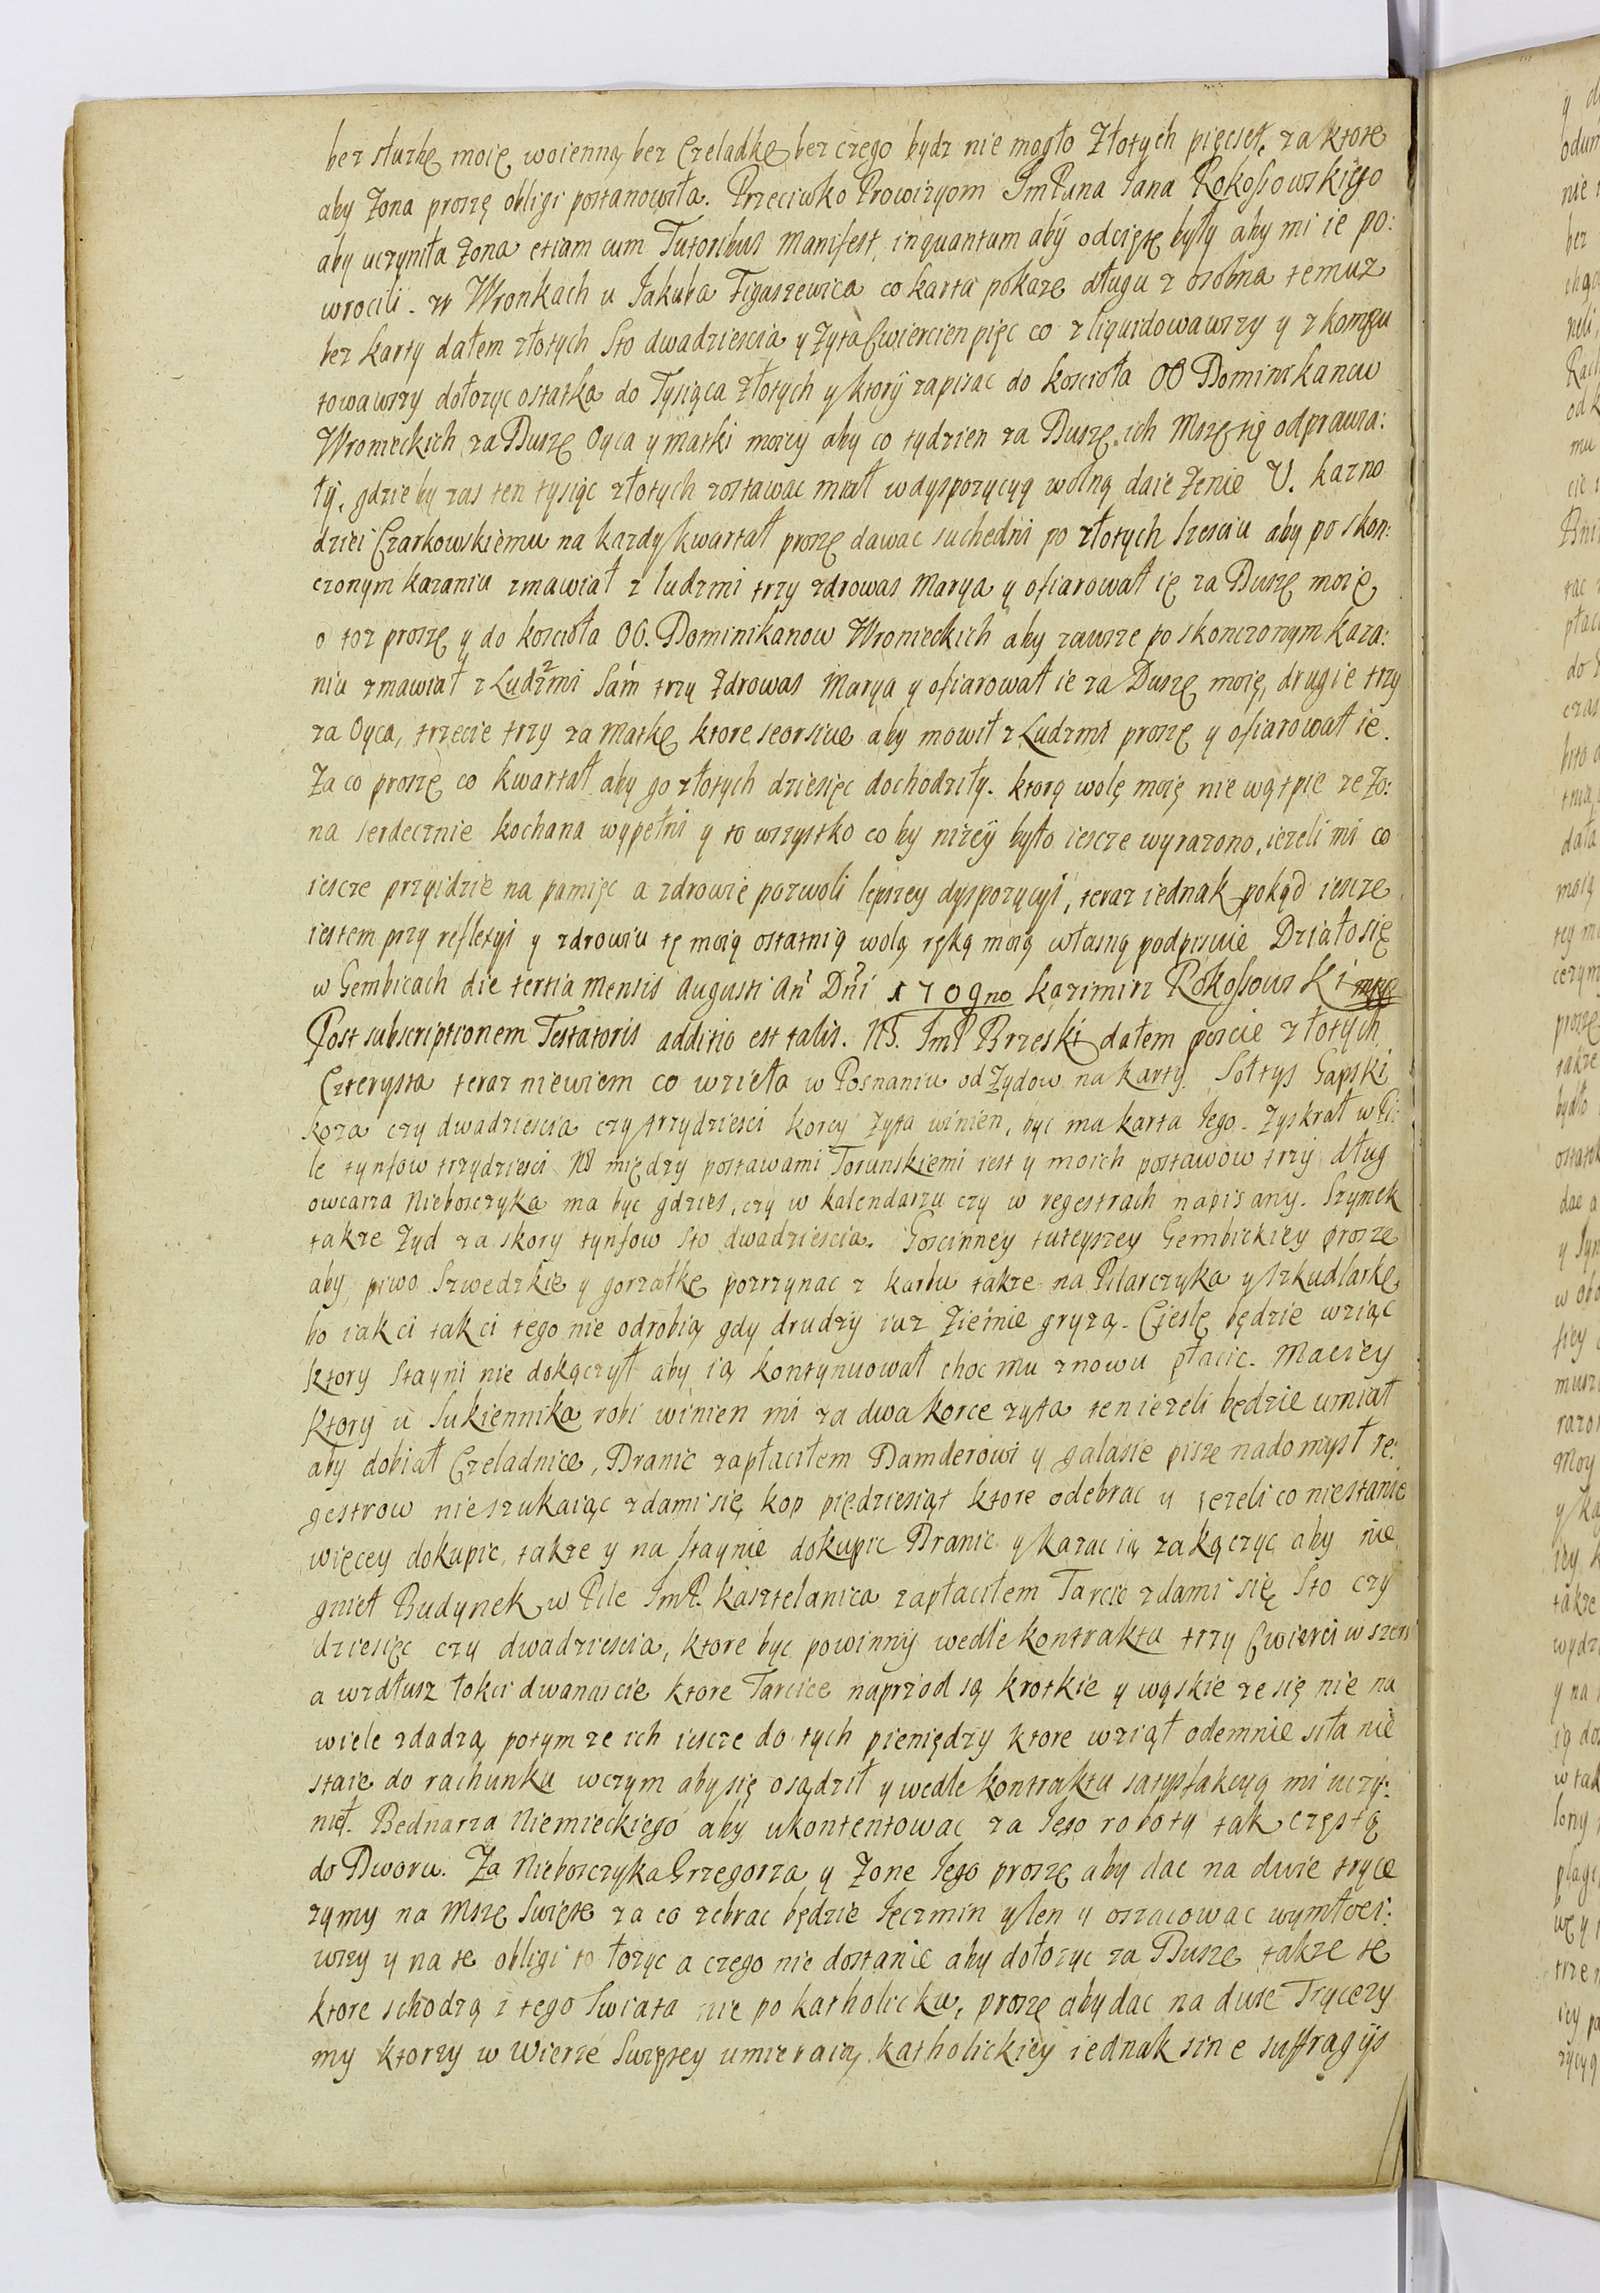 bez służbę moię woienną, bez Czeladkę bez czego bydz nie mogło Złotych pięcset, za ktore
aby Zona proszę obligi postanowiła. Przeciwko Prowizyom ImPana Iana Rokossowskiego
aby uczyniła Zona etiam cum Tutoribus Manifest, inquantum aby odcięte były aby mi ie po:
wrocili. w Wronkach u Iakuba Figuszewica co karta pokaze długu z osobna temuz
bez karty dałem złotych Sto dwadziescia y Zyta Cwiercien pięc co zliquidowawszy y zkompu
towawszy dołozyc ostatka do Tysiąca złotych y ktory zapisac do koscioła OO Dominikanow
Wronieckich za Duszę Oyca y matki moiey aby co tydzien za Duszę ich Mszę się odprawia:
ły, gdzieby zas ten tysiąc złotych zostawac miał wdyspozycyą wolną daie Zenie V. kazno
dziei Czarkowskiemu na kazdy kwartał proszę dawac suchedni po złotych szesciu aby po skon:
czonym kazaniu zmawiał z ludzmi trzy zdrowas Marya y ofiarował ie za Duszę moię,
o toz proszę y do koscioła OO. Dominikanow Wronieckich aby zawsze po skonczonym kaza:
niu zmawiał z Ludzmi Sam trzy zdrowas Marya y ofiarował ie za Duszę moię, drugie trzy
za Oyca, trzecie trzy za Matkę ktore seorsive aby mowił z Ludzmi proszę y ofiarował ie.
Za co proszę co kwartał aby go złotych dziesięc dochodziły. ktorą wolę moię nie wątpie ze Zo:
na serdecznie kochana wypełni y to wszystko co by nizey było iescze wyrazono, iezeli mi co
iescze przyidzie na pamięc a zdrowie pozwoli lepszey dyspozycyi, teraz iednak pokąd iescze
iestem przy reflexyi y zdrowiu tę moią ostatnią wolą ręką moią własną podpisuie Działo się
w Gembicach die tertia Mensis Augusti An Dni 1709no Kazimirz Rokossowski mpp
Post subscriptionem Testatoris additio est talis. NB. ImP Brzeski dałem poscie złotych
Czterysta teraz niewiem co wzieła w Posnaniu od Zydow na karty. Sołtys Gapski
koza czy dwadziescia czy trzydziesci korcy zyta winien, byc ma karta Iego. Zyskrał w Pi:
le tynfow trzydziesci NB między postawami Torunskiemi iest y moich postawow trzy dług
owcarza Nieboszczyka ma byc gdzies, czy w kalendarzu czy w regestrach napisany. Szymek
takze Zyd za skory tynfow sto dwadziescia. Goscinney tuteyszey Gembickiey prosze
aby piwo Szwedzkie y gorzałkę pozrzynac z karbu takze na Pilarczyka y szkudlarkę
bo iak ci tak ci tego nie odrobią gdy drudzy iuz Ziemie gryzą. Cieslę będzie wziąc
ktory Stayni nie dokączył aby ią kontynuował choc mu znowu płacic. Maciey
ktory u Sukiennika robi winien mi za dwa korce zyta ten iezeli będzie umiał
aby dobiał Czeladnice, Dranic zapłaciłem Damderowi y galasie pisze nadomysł re:
gestrow nieszukaiąc zdami się kop piędziesiąt ktore odebrac y iezeli co niestanie
więcey dokupic, takze y na staynie dokupic Dranic y kazac ią zakączyc aby nie
gnieł Budynek, w Pile ImP. kasztelanica zapłaciłem Tarcic zdami się Sto czy
dziesięc czy dwadziescia, ktore byc powinny wedle kontraktu trzy Cwierci wszerz
a wzdłusz łokci dwanascie ktore Tarcice naprzod są krotkie y wąskie ze się nie na
wiele zdadzą, potym ze ich iescze do tych pieniędzy ktore wziął odemnie siła nie
staie do rachunku wczym aby się osądził y wedle kontraktu satysfakcyą mi uczy:
nieł. Bednarza Niemieckiego aby ukontentowac za Iego roboty tak częstą
do Dworu. Za Nieboszczyka Grzegorza y Zone Iego proszę aby dac na dwie tryce
zymy na Mszę Swięte za co zebrac będzie Ięczmin y len y oszacowac wymłoci:
wszy y na te obligi to łozyc a czego nie dostanie aby dołozyc za Dusze takze te
ktore schodzą z tego Swiata nie po katholicku, proszę aby dac na dwie Trycezy
my ktorzy w Wierze Swiętey umieraią katholickiey iednak sine suffragijs